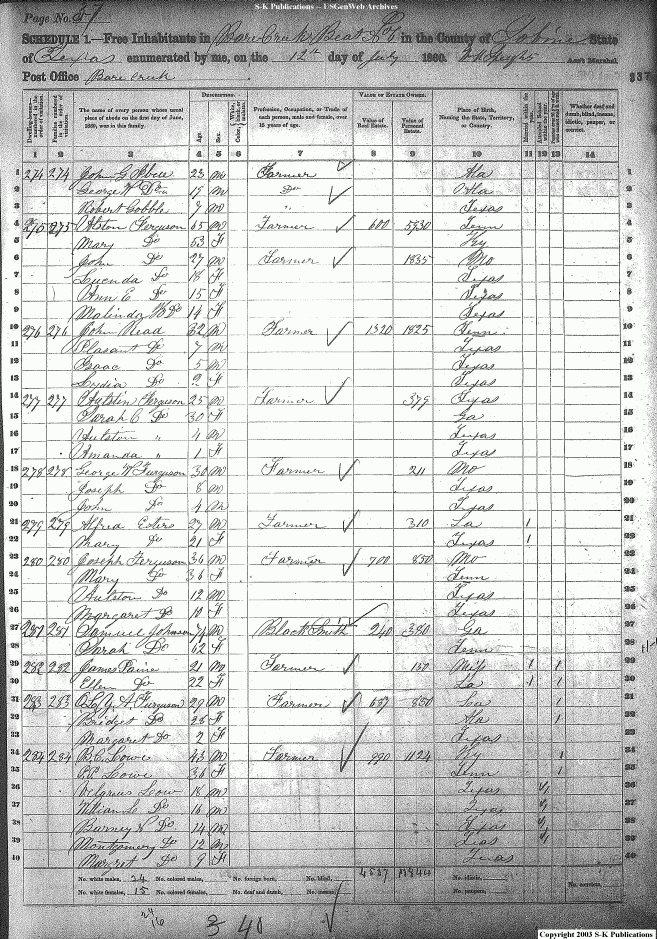 S-K Publications -- USGenWeb Archives
Page No. 57
SCHEDULE 1.—Free Inhabitants in Bare Creek Beat in the County of Sabine State
of Texas enumerated by me, on the 12th day of July 1860. Ass't Marshal.
Post Office Bare Creek
337
Dwelling-houses numbered in the order of visitation.
Families numbered in the order of visitation.
The name of every person whose usual place of abode on the first day of June, 1860, was in this family.
DESCRIPTION.
Age
Sex
Color, White, black, or mulatto
Profession, Occupation, or Trade of each person, male and female, over 15 years of age.
VALUE OF ESTATE OWNED.
Value of Real Estate.
Value of Personal Estate.
Place of Birth, Naming the State, Territory, or Country.
Married within the year.
Attended School within the year.
Whether deaf and dumb, blind, insane, idiotic, pauper, or convict.
1 2 3 4 5 6 7 8 9 10 11 12 13 14
1 274 274 John G 23 m Farmer Ala 1
2 George W Do 19 m Do Ala 2
3 Robert Gobble 7 m " Texas 3
4 275 275 Alston Ferguson 65 m Farmer 600 Tenn 4
5 Mary Do 53 f Ky 5
6 John Do 27 m Farmer 1835 Mo 6
7 Lucenda Do 18 f Texas 7
8 Ann E Do 15 f Texas 8
9 Malinda Do 14 f Texas 9
10 276 276 John 32 m Farmer 1320 1825 Tenn 10
11 Pleasant Do 7 m Texas 11
12 Isaac Do 5 m Texas 12
13 Lydia Do 2 f Texas 13
14 277 277 Ferguson 25 m Farmer 379 Texas 14
15 Sarah C Do 30 f Ga 15
16 Aulston " 4 m Texas 16
17 Amanda " 1 f Texas 17
18 278 278 George W Ferguson 30 m Farmer 211 Mo 18
19 Joseph Do 8 m Texas 19
20 John Do 4 m Texas 20
21 279 279 Alfred 27 m Farmer 310 La 1 21
22 Mary Do 21 f Texas 1 22
23 280 280 Joseph Ferguson 36 m Farmer 700 850 Mo 23
24 Mary Do 36 f Tenn 24
25 Aulston Do 12 m Texas 25
26 Margaret Do 10 f Texas 26
27 281 281 Samuel Johnson 74 m Black Smith 240 380 Ga 27
28 Sarah Do 62 f Tenn 28
29 282 282 James Paine 21 m Farmer 150 Miss 1 1 29
30 Ellen Do 22 f La 1 1 30
31 283 283 Ferguson 29 m Farmer 687 850 La 1 31
32 Bridget Do 28 f Ala 1 32
33 Margaret Do 2 f Texas 33
34 284 284 B.C. Lowe 43 m Farmer 990 1124 Ky 1 34
35 Lowe 36 f Tenn 1 35
36 Low 18 m Texas 1 36
37 William Do 16 m Texas 1 37
38 Barney Do 14 m Texas 1 38
39 Montgomery Do 12 m Texas 1 39
40 Margret Do 9 f Texas 40
No. white males, 24 No. colored males, No. foreign born, No. blind, No. idiotic, No. convicts,
No. white females, 15 No. colored females, No. deaf and dumb, No. insane, No. paupers,
24
16
3 40
Copyright 2003 S-K Publications